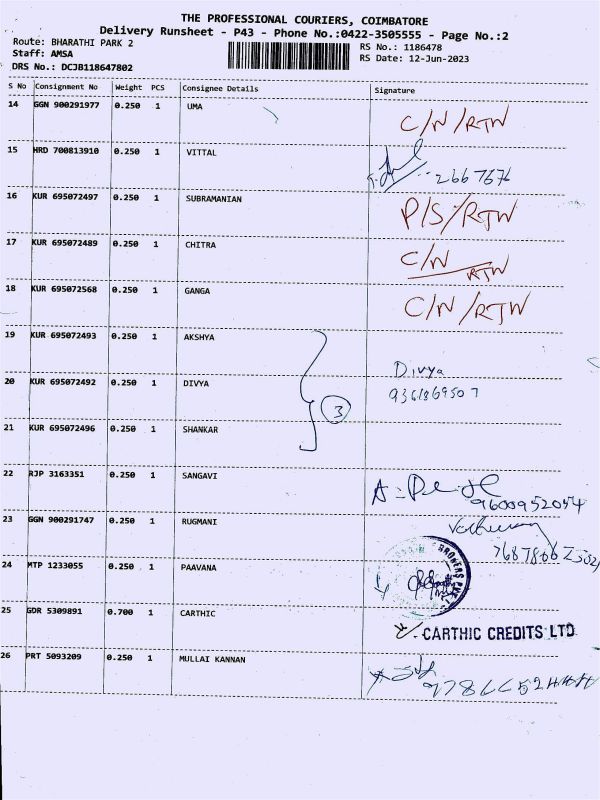 THE PROFESSIONAL COURIERS, COIMBATORE
Delivery Runsheet - P43 - Phone No.:0422-3505555 - Page No.:2
Route: BHARATHI PARK 2
RS No.: 1186478
Staff: AMSA
RS Date: 12-Jun-2023
DRS No.: DCJB118647802
S No Consignment No Weight PCS Consignee Details Signature
14 GGN 900291977 0.250 1 UMA C/N/RTW
15 HRD 700813910 0.250 1 VITTAL 2667676
16 KUR 695072497 0.250 1 SUBRAMANIAN P/S/RTW
17 KUR 695072489 0.250 1 CHITRA C/N RTW
18 KUR 695072568 0.250 1 GANGA C/N/RTW
19 KUR 695072493 0.250 1 AKSHYA
Divya
20 KUR 695072492 0.250 1 DIVYA 9361869507
3
21 KUR 695072496 0.250 1 SHANKAR
22 RJP 3163351 0.250 1 SANGAVI
9600952054
23 GGN 900291747 0.250 1 RUGMANI
24 MTP 1233055 0.250 1 PAAVANA
BROKERS
25 GDR 5309891 0.700 1 CARTHIC
CARTHIC CREDITS LTD
26 PRT 5093209 0.250 1 MULLAI KANNAN